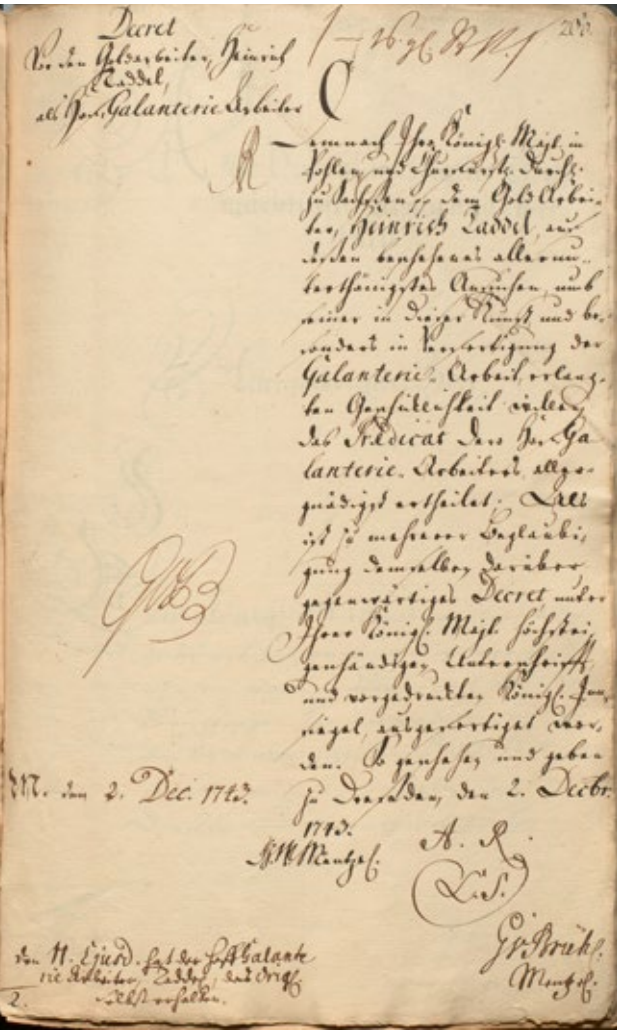 Decret
Vor den Goldarbeiter, Heinrich
Taddel,
als Hof-Galanterie Arbeiter
206.
Demnach Ihro Königl. Majt. in
Pohlen und Churfürstl. Durchl.
zu Sachßen p. dem Gold Arbei-
ter, Heinrich Taddel, auf
deßen beschehenes allerun-
terthänigstes Ansuchen, umb
seiner in dieser Kunst und be-
sonders in Verfertigung der
Galanterie-Arbeit, erlang-
ten Geschicklichkeit willen
das Prædicat Dero Hof-Ga
lanterie-Arbeiters, aller-
gnädigst ertheilet; Als
ist zu mehrerer Beglaubi-
gung demselben darüber
gegenwärtiges Decret unter
Ihrer Königl. Majt. höchstei-
genhändigen Unterschrifft,
und vorgedruckten Königl. Inn-
siegel, ausgefertiget wor-
den. So geschehen und geben
zu Dreßden, den 2. Decbr.
1743.
M. den 2. Dec. 1743.
Mentzel.
A. R.
(L.S.)
GvBrühl.
Mentzel.
den 11. Ejusd. hat der Hoff Galante
rie Arbeiter, Taddel, das Orig.
selbst erhalten.
2.